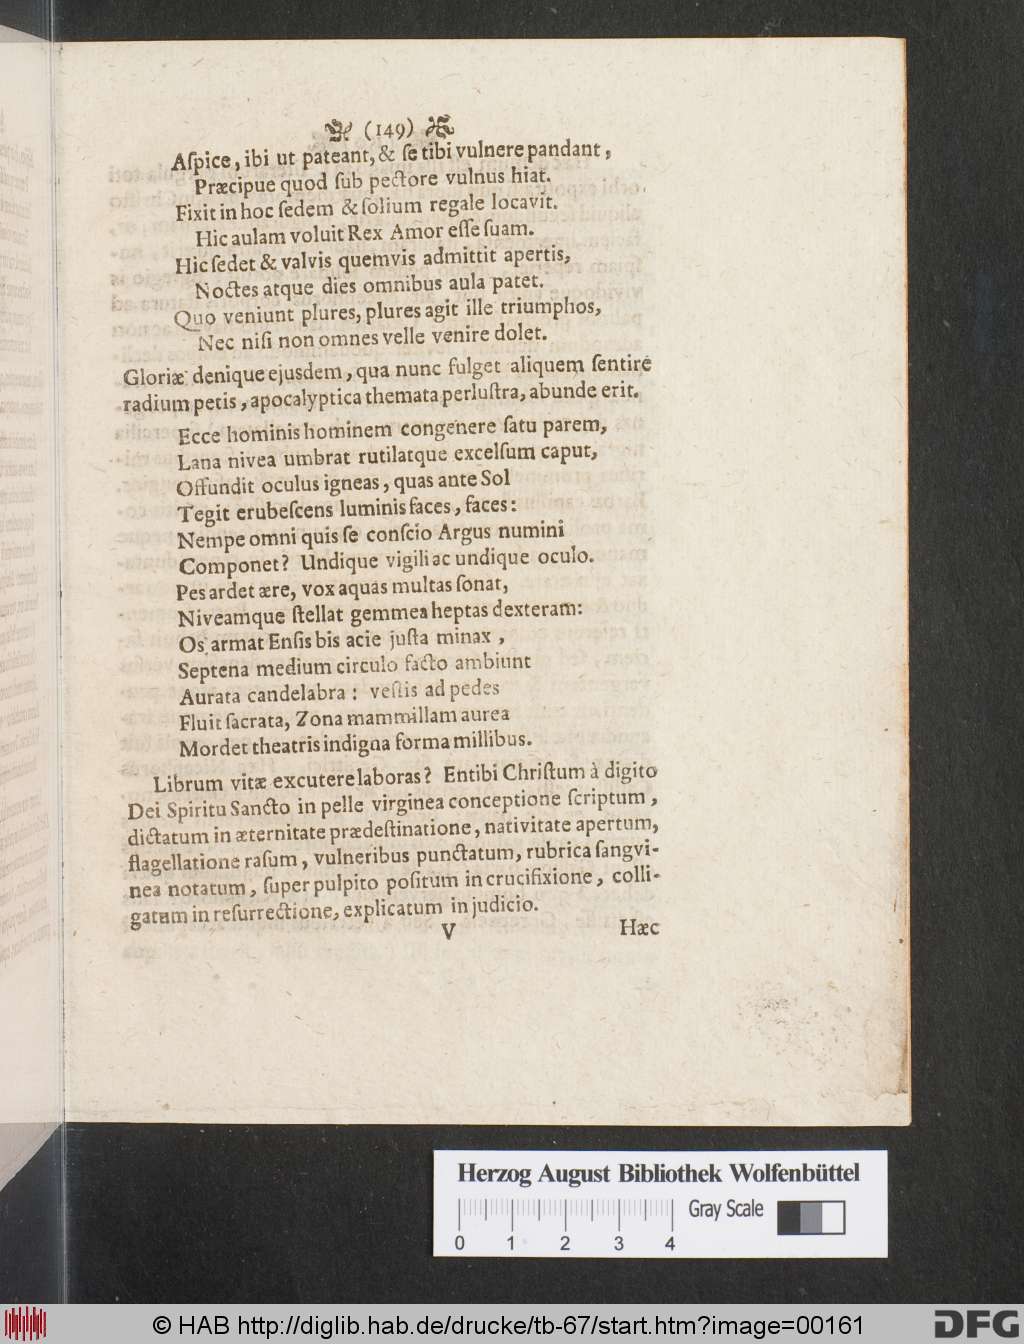 (149)
Aſpice, ibi ut pateant, & ſe tibi vulnere pandant,
Præcipue quod ſub pectore vulnus hiat.
Fixit in hoc ſedem & ſolium regale locavit.
Hic aulam voluit Rex Amor eſſe ſuam.
Hic ſedet & valvis quemvis admittit apertis,
Noctes atque dies omnibus aula patet.
Quo veniunt plures, plures agit ille triumphos,
Nec niſi non omnes velle venire dolet.
Gloriæ denique ejusdem, qua nunc fulget aliquem ſentire
radium petis, apocalyptica themata perluſtra, abunde erit.
Ecce hominis hominem congenere ſatu parem,
Lana nivea umbrat rutilatque excelſum caput,
Offundit oculus igneas, quas ante Sol
Tegit erubeſcens luminis faces, faces:
Nempe omni quis ſe conſcio Argus numini
Componet? Undique vigili ac undique oculo.
Pes ardet ære, vox aquas multas ſonat,
Niveamque ſtellat gemmea heptas dexteram:
Os armat Enſis bis acie juſta minax,
Septena medium circulo facto ambiunt
Aurata candelabra: veſtis ad pedes
Fluit ſacrata, Zona mammillam aurea
Mordet theatris indigna forma millibus.
Librum vitæ excutere laboras? En tibi Chriſtum à digito
Dei Spiritu Sancto in pelle virginea conceptione ſcriptum,
dictatum in æternitate prædeſtinatione, nativitate apertum,
flagellatione raſum, vulneribus punctatum, rubrica ſangvi-
nea notatum, ſuper pulpito poſitum in crucifixione, colli-
gatum in reſurrectione, explicatum in judicio.
V Hæc
Herzog August Bibliothek Wolfenbüttel
Gray Scale
0 1 2 3 4
© HAB http://diglib.hab.de/drucke/tb-67/start.htm?image=00161
DFG